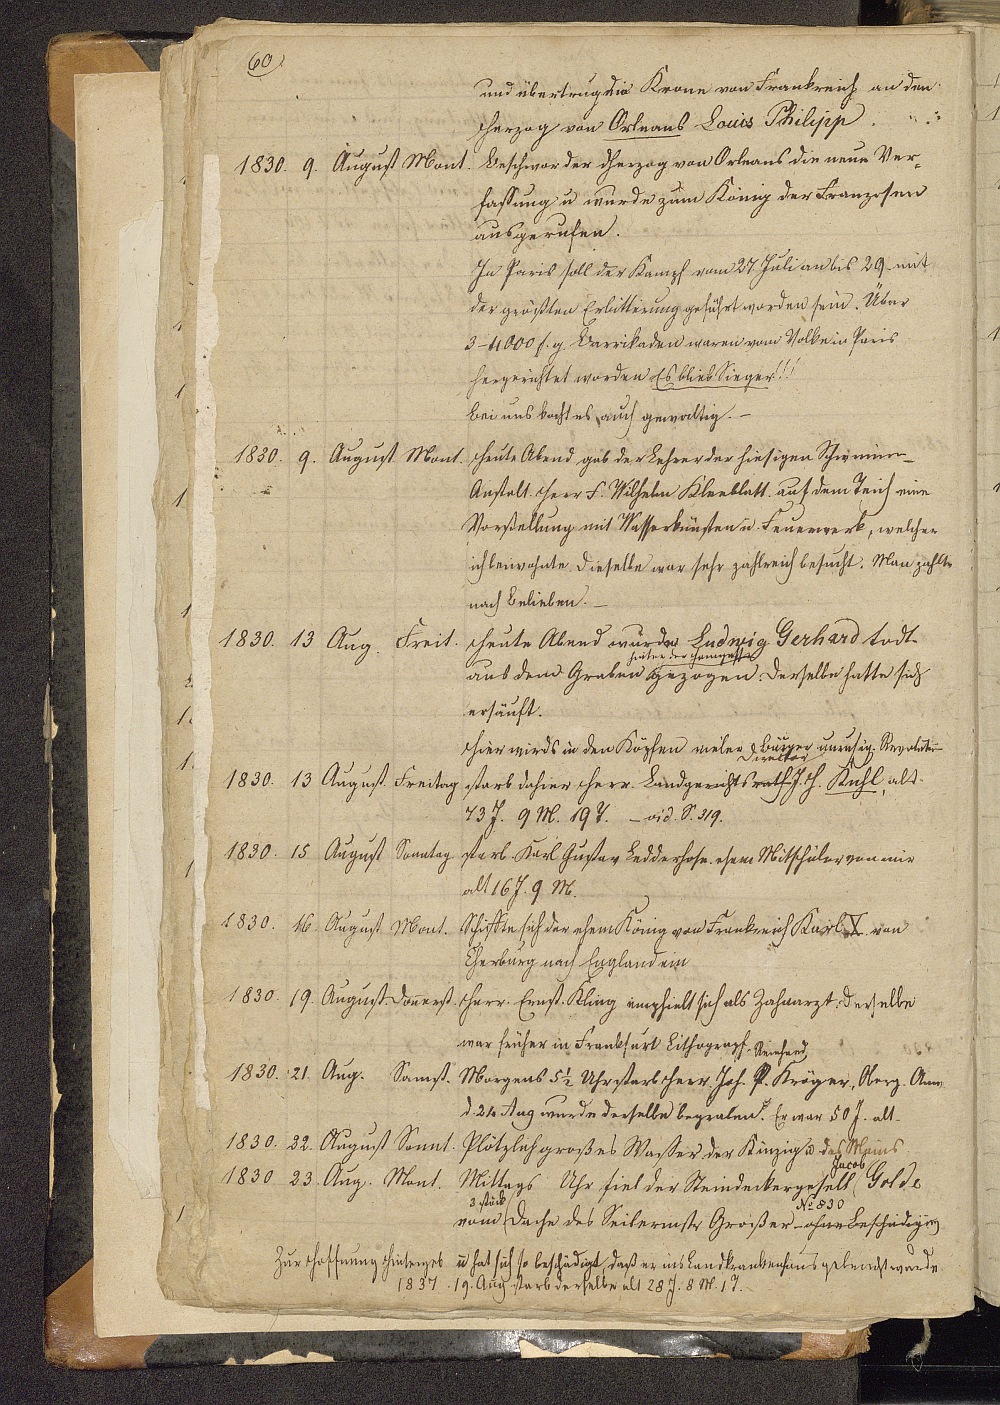 60
und übertrug die Krone von Frankreich an den
Herzog von Orleans Louis Philipp.
1830. 9. August Mont. Beschwor der Herzog von Orleans die neue Ver-
fassung u wurde zum König der Franzosen
ausgerufen.
In Paris soll der Kampf vom 27 Juli an bis 29 mit
der größten Erbitterung geführt worden sein. Über
3-4000 s. g. Barrikaden waren vom Volke in Paris
hergerichtet worden Es blieb Sieger!!!
Bei uns kocht es auch gewaltig. –
1830. 9. August Mont. Heute Abend gab der Lehrer der hiesigen Schwimm-
Anstalt Herr F. Wilhelm Kleeblatt auf dem Teich eine
Vorstellung mit Wasserkünsten u Feuerwerk, welcher
ich beiwohnte. Dieselbe war sehr zahlreich besucht. Man zahlte
nach Belieben. –
1830. 13 Aug. Freit. Heute Abend wurde Ludwig Gerhard todt
hinter der
aus dem Graben gezogen. Derselbe hatte sich
ersäuft.
Hier wirds in den Köpfen vieler Bürger unruhig. Revolution
Director
1830. 13 August Freitag starb dahier Herr Landgerichtsrath J. H. Kuhl, alt
73 J. 9 M. 19 T. – vid. S. 319.
1830. 15 August Sonntag starb Karl Gustav Ledderhose ehem Mitschüler von mir
alt 16 J. 9 M.
1830. 16. August Mont. Schiffte sich der ehem König von Frankreich Karl X von
Cherburg nach England ein
1830. 19. August Donnerst. Herr Ernst Kling empfielt sich als Zahnarzt. Derselbe
war früher in Frankfurt Lithograph.
1830. 21. Aug. Samst. Morgens 5½ Uhr starb Herr Joh. P. Kröger,
d. 24 Aug wurde derselbe begraben. Er war 50 J. alt.
1830. 22. August Sonnt. Plötzlich großes Wasser der Kinzig u des Mains
Jacob
1830 23. Aug. Mont. Mittags Uhr fiel der Steindeckergesell Golde
3 stück
No 830
vom Dache des Seilermstr Großer – ohne Beschädigung
Zur Hoffnung u hat sich so beschädigt, daß er ins Landkrankenhaus gebracht wurde
1837. 19. Aug starb derselbe alt 28 J. 8 M. 1 T.